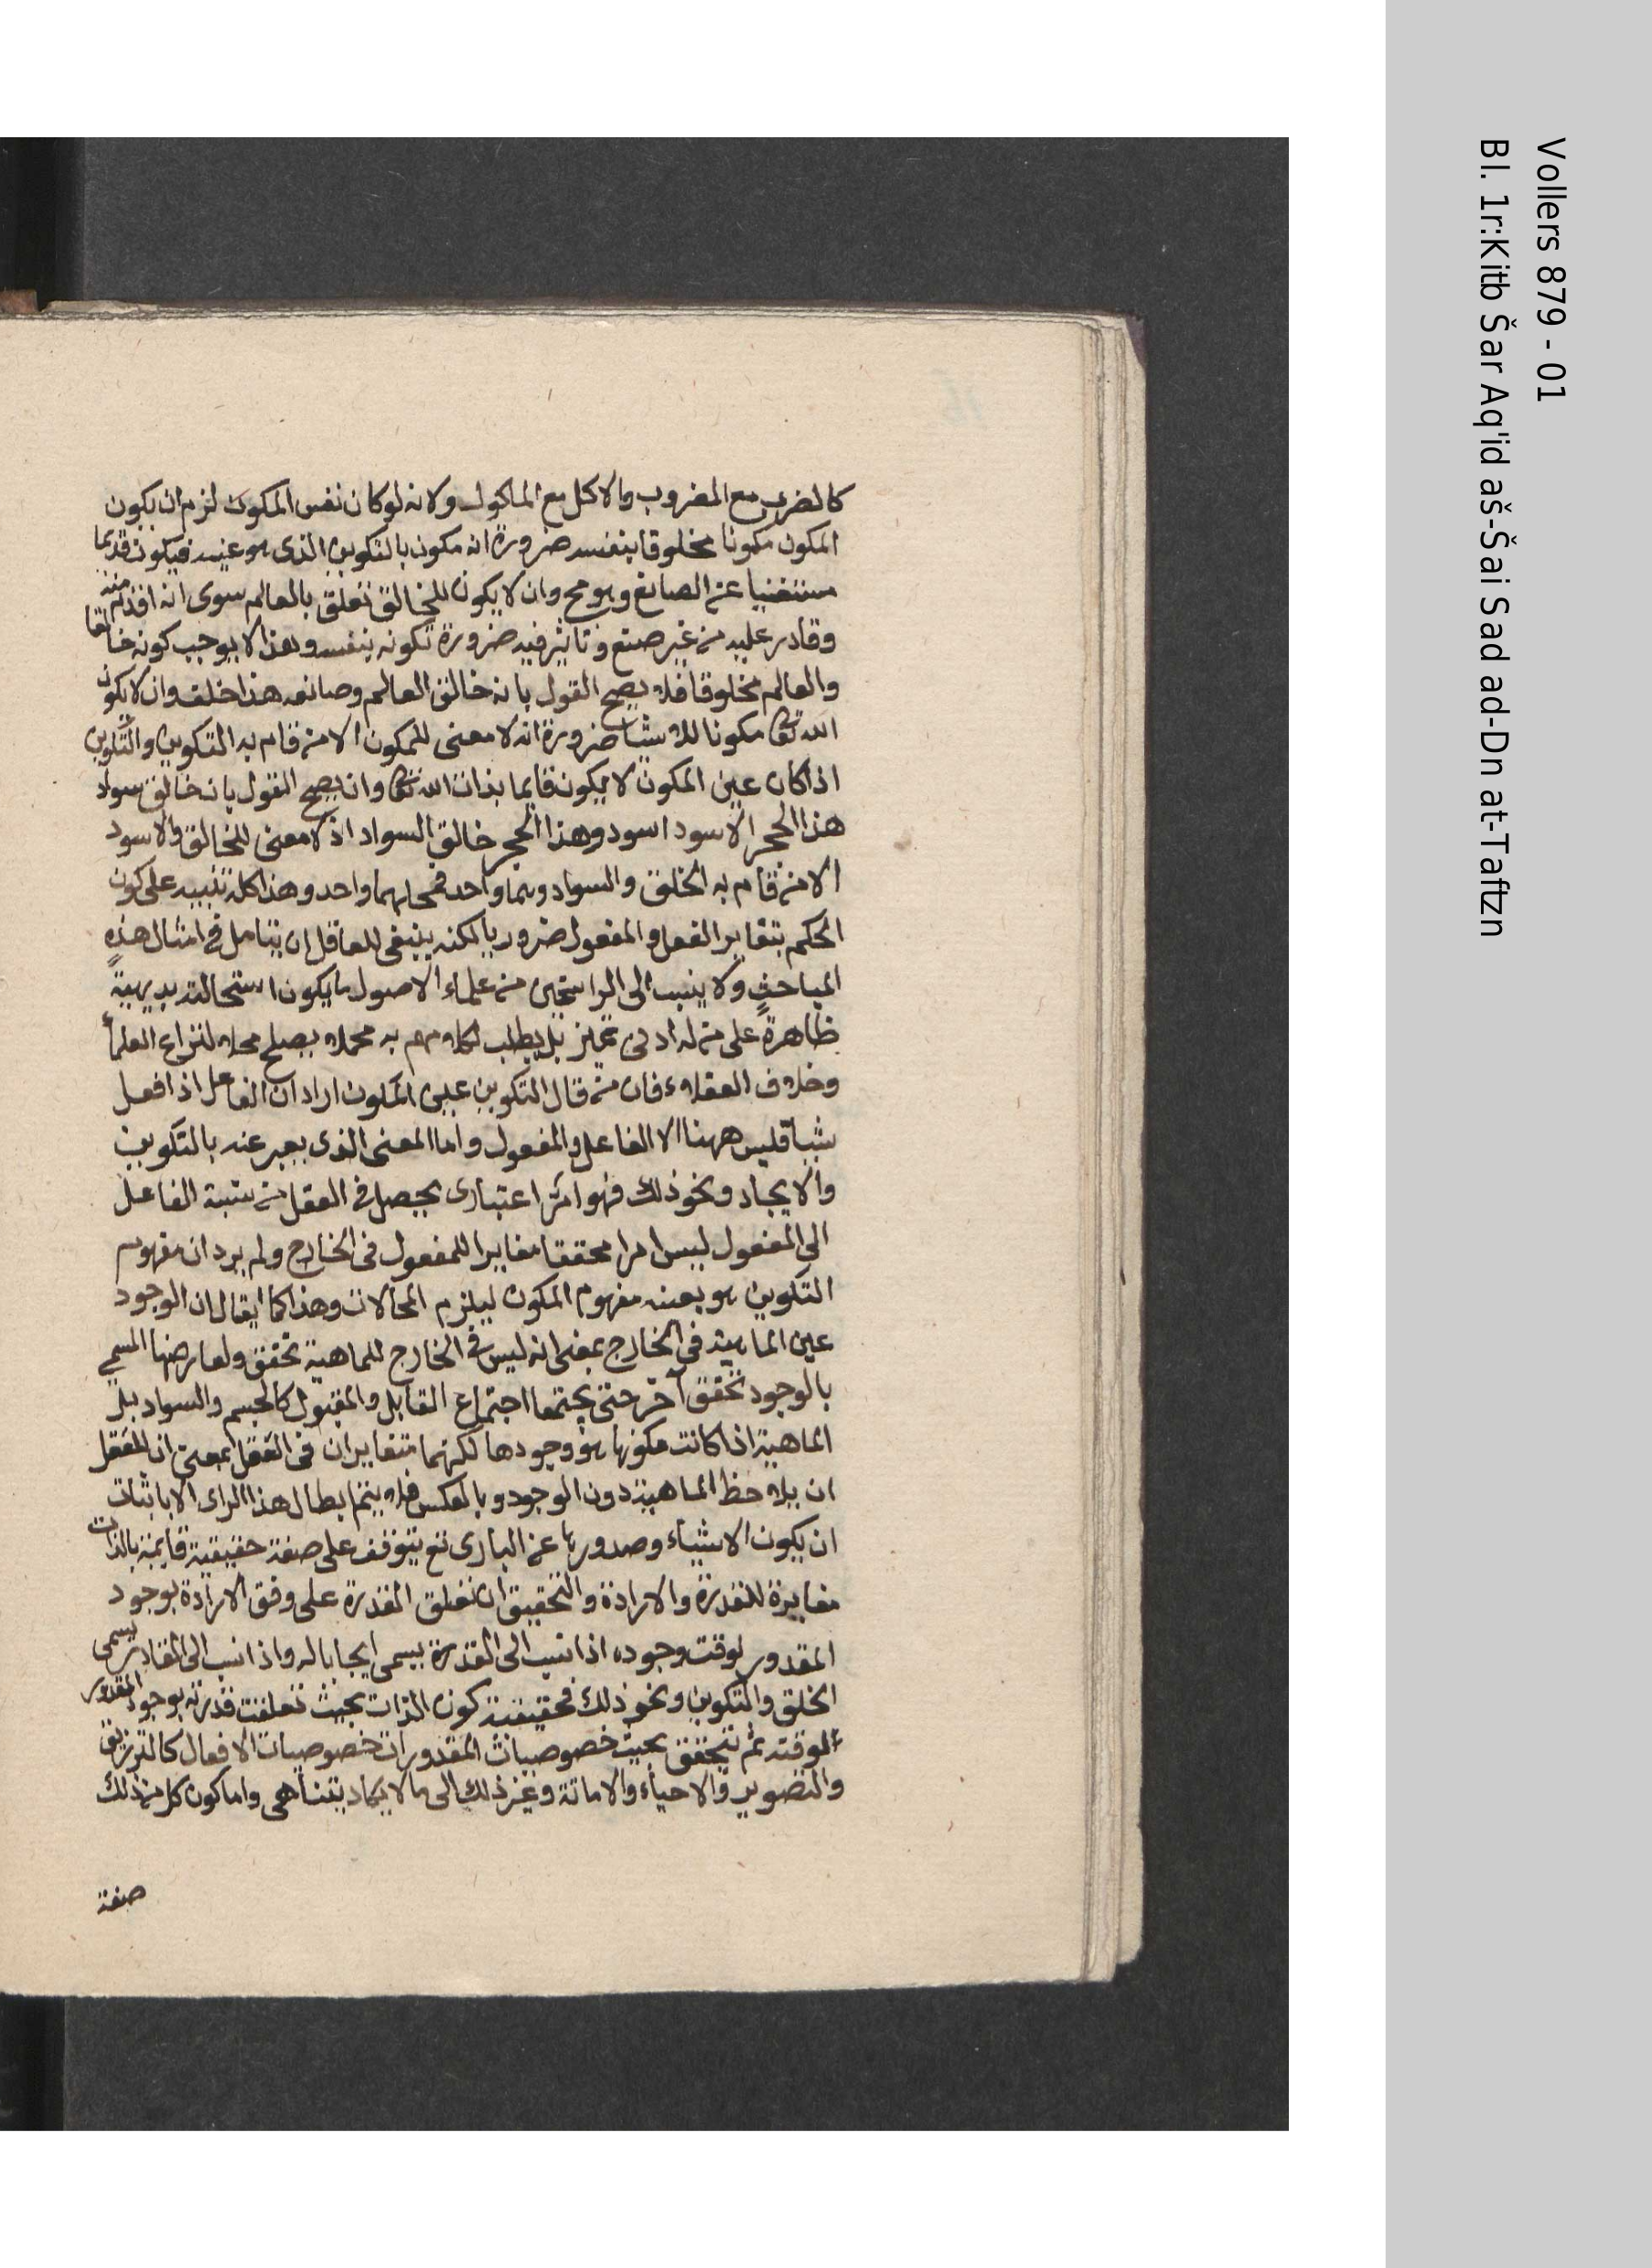 كالضرب مع المضروب والاكل مع الماكول ولانه لوكان نفس المكون لزم ان يكون
المكون مكونا مخلوقا بنفسه ضرورة انه مكون بالتكوين الذى هو عينه فيكون قديما
مستغنيا عن الصانع وهو مح وان لا يكون للخالق تعلق بالعالم سوى انه اقدم منه
وقادر عليه من غير صنع وتاثير فيه ضرورة تكونه بنفسه وهذا لا يوجب كونه خالقا
والعالم مخلوقا فلا يصح القول بانه خالق العالم وصانعه هذا خلف وان لا يكون
الله تعا مكونا للاشيا ضرورة انه لا معنى للمكون الا من قام به التكوين والتكوين
اذا كان عين المكون لا يكون قايما بذات الله تعا وان يصح القول بانه خالق سواد
هذا الحجر الاسود اسود وهذا الحجر خالق السواد اذ لا معنى للخالق والاسود
الا من قام به الخلق والسواد وهما واحد فمحلهما واحد وهذا كله تنبيه على كون
الحكم بتغاير الفعل والمفعول ضروريا لكنه ينبغى للعاقل ان يتامل فى امثال هذه
المباحث ولا ينسب الى الراسخين من علماء الاصول ما يكون استحالته بديهية
ظاهرة على من له ادنى تميز بل يطلب لكلامهم به محملا يصلح محلا لنزاع العلما
وخلاف العقلاء فان من قال التكوين عين المكون اراد ان الفاعل اذا فعل
شيا فليس ههنا الا الفاعل والمفعول واما المعنى الذى يعبر عنه بالتكوين
والايجاد ونحو ذلك فهو امر اعتبارى يحصل فى العقل من نسبة الفاعل
الى المفعول ليس امرا محققا مغايرا للمفعول فى الخارج ولم يرد ان مفهوم
التكوين هو بعينه مفهوم المكون ليلزم المحالات وهذا كما يقال ان الوجود
عين الماهية فى الخارج بمعنى انه ليس فى الخارج للماهية تحقق ولعارضها المسمى
بالوجود تحقق آخر حتى يجتمعا اجتماع القابل والمقبول كالجسم والسواد بل
الماهية اذا كانت فكونها هو وجودها لكنهما متغايران فى العقل بمعنى ان للعقل
ان يلاحظ الماهية دون الوجود وبالعكس فلا يتم ابطال هذا الراى الا باثبات
ان يكون الاشياء وصدورها عن البارى تع يتوقف على صفة حقيقية قايمة بالذات
مغايرة للقدرة والارادة والتحقيق ان تعلق القدرة على وفق الارادة بوجود
المقدور لوقت وجوده اذا نسب الى القدرة يسمى ايجابا له واذا نسب الى القادر يسمى
الخلق والتكوين ونحو ذلك فحقيقته كون الذات بحيث تعلقت قدرته بوجود المقدور
لوقته ثم تتحقق بحيث خصوصيات المقدورات خصوصيات الافعال كالترزيق
والتصوير والاحياء والاماتة وغير ذلك الى ما لا يكاد يتناهى واما كون كل من ذلك
صفة
Vollers 879 - 01
Bl. 1r:Kitb Šar Aq'id aš-Šai Sad ad-Dn at-Taftzn